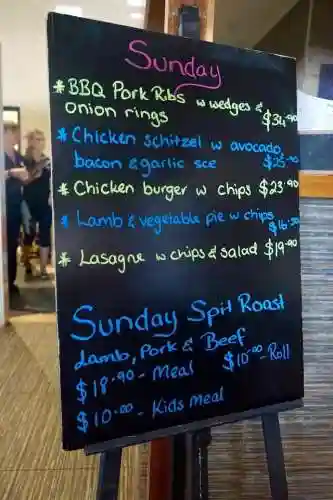 Sunday
* BBQ Pork Ribs w wedges &
onion rings $34.90
* Chicken schitzel w avocado,
bacon & garlic sce $25.90
* Chicken burger w chips $23.90
* Lamb & vegetable pie w chips
$16.50
* Lasagne w chips & salad $19.90
Sunday Spit Roast
Lamb, Pork & Beef
$18.90 - Meal $10.00 - Roll
$10.00 - Kids meal